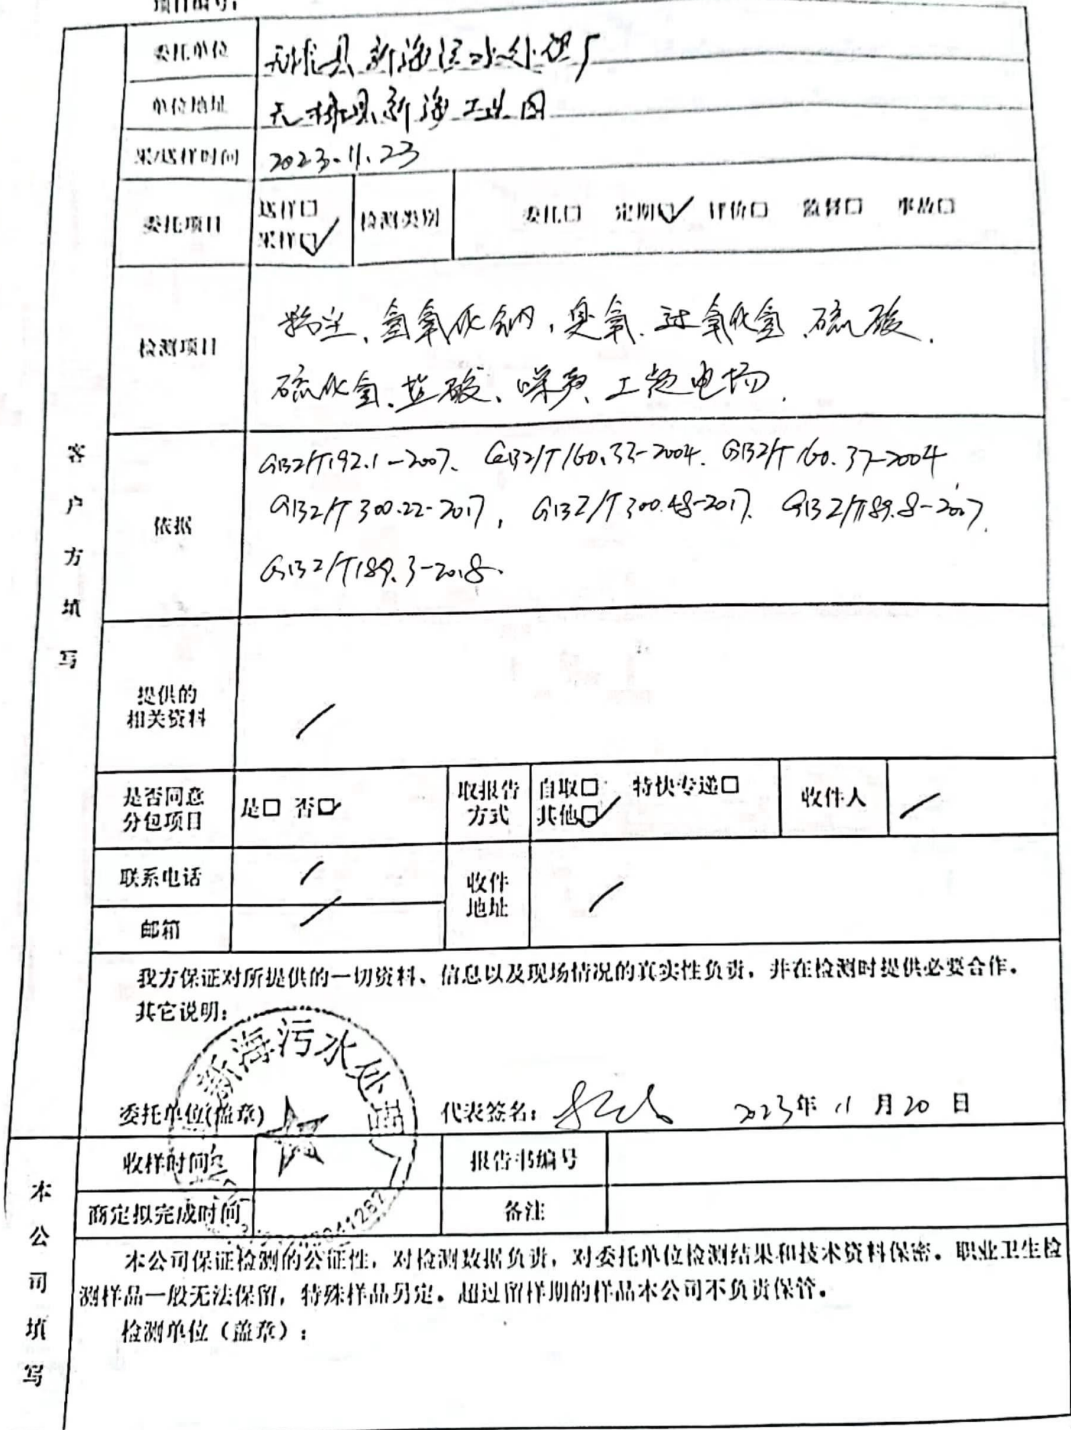 项目编号:
委托单位 无棣县新海污水处理厂
单位地址 无棣县新海工业园
采/送样时间 2023.11.23
委托项目 送样□ 采样☑ 检测类别 委托□ 定期☑ 评价□ 监督□ 事故□
检测项目 粉尘、氢氧化钠、臭氧、过氧化氢、硫酸、
硫化氢、盐酸、噪声、工频电场.
客户方填写
依据 GBZ/T192.1-2007、GBZ/T160.33-2004、GBZ/T160.37-2004
GBZ/T300.22-2017, GBZ/T300.48-2017、GBZ/T189.8-2007、
GBZ/T189.3-2018.
提供的
相关资料 /
是否同意
分包项目 是□ 否☑ 取报告
方式 自取□ 特快专递□
其他☑ 收件人 /
联系电话 / 收件
地址 /
邮箱 /
我方保证对所提供的一切资料、信息以及现场情况的真实性负责，并在检测时提供必要合作。
其它说明:
新海污水处理厂
委托单位(盖章) 代表签名: 2023年11月20日
收样时间 报告书编号
商定拟完成时间 备注
本公司填写
本公司保证检测的公证性，对检测数据负责，对委托单位检测结果和技术资料保密。职业卫生检
测样品一般无法保留，特殊样品另定。超过留样期的样品本公司不负责保管。
检测单位（盖章）: